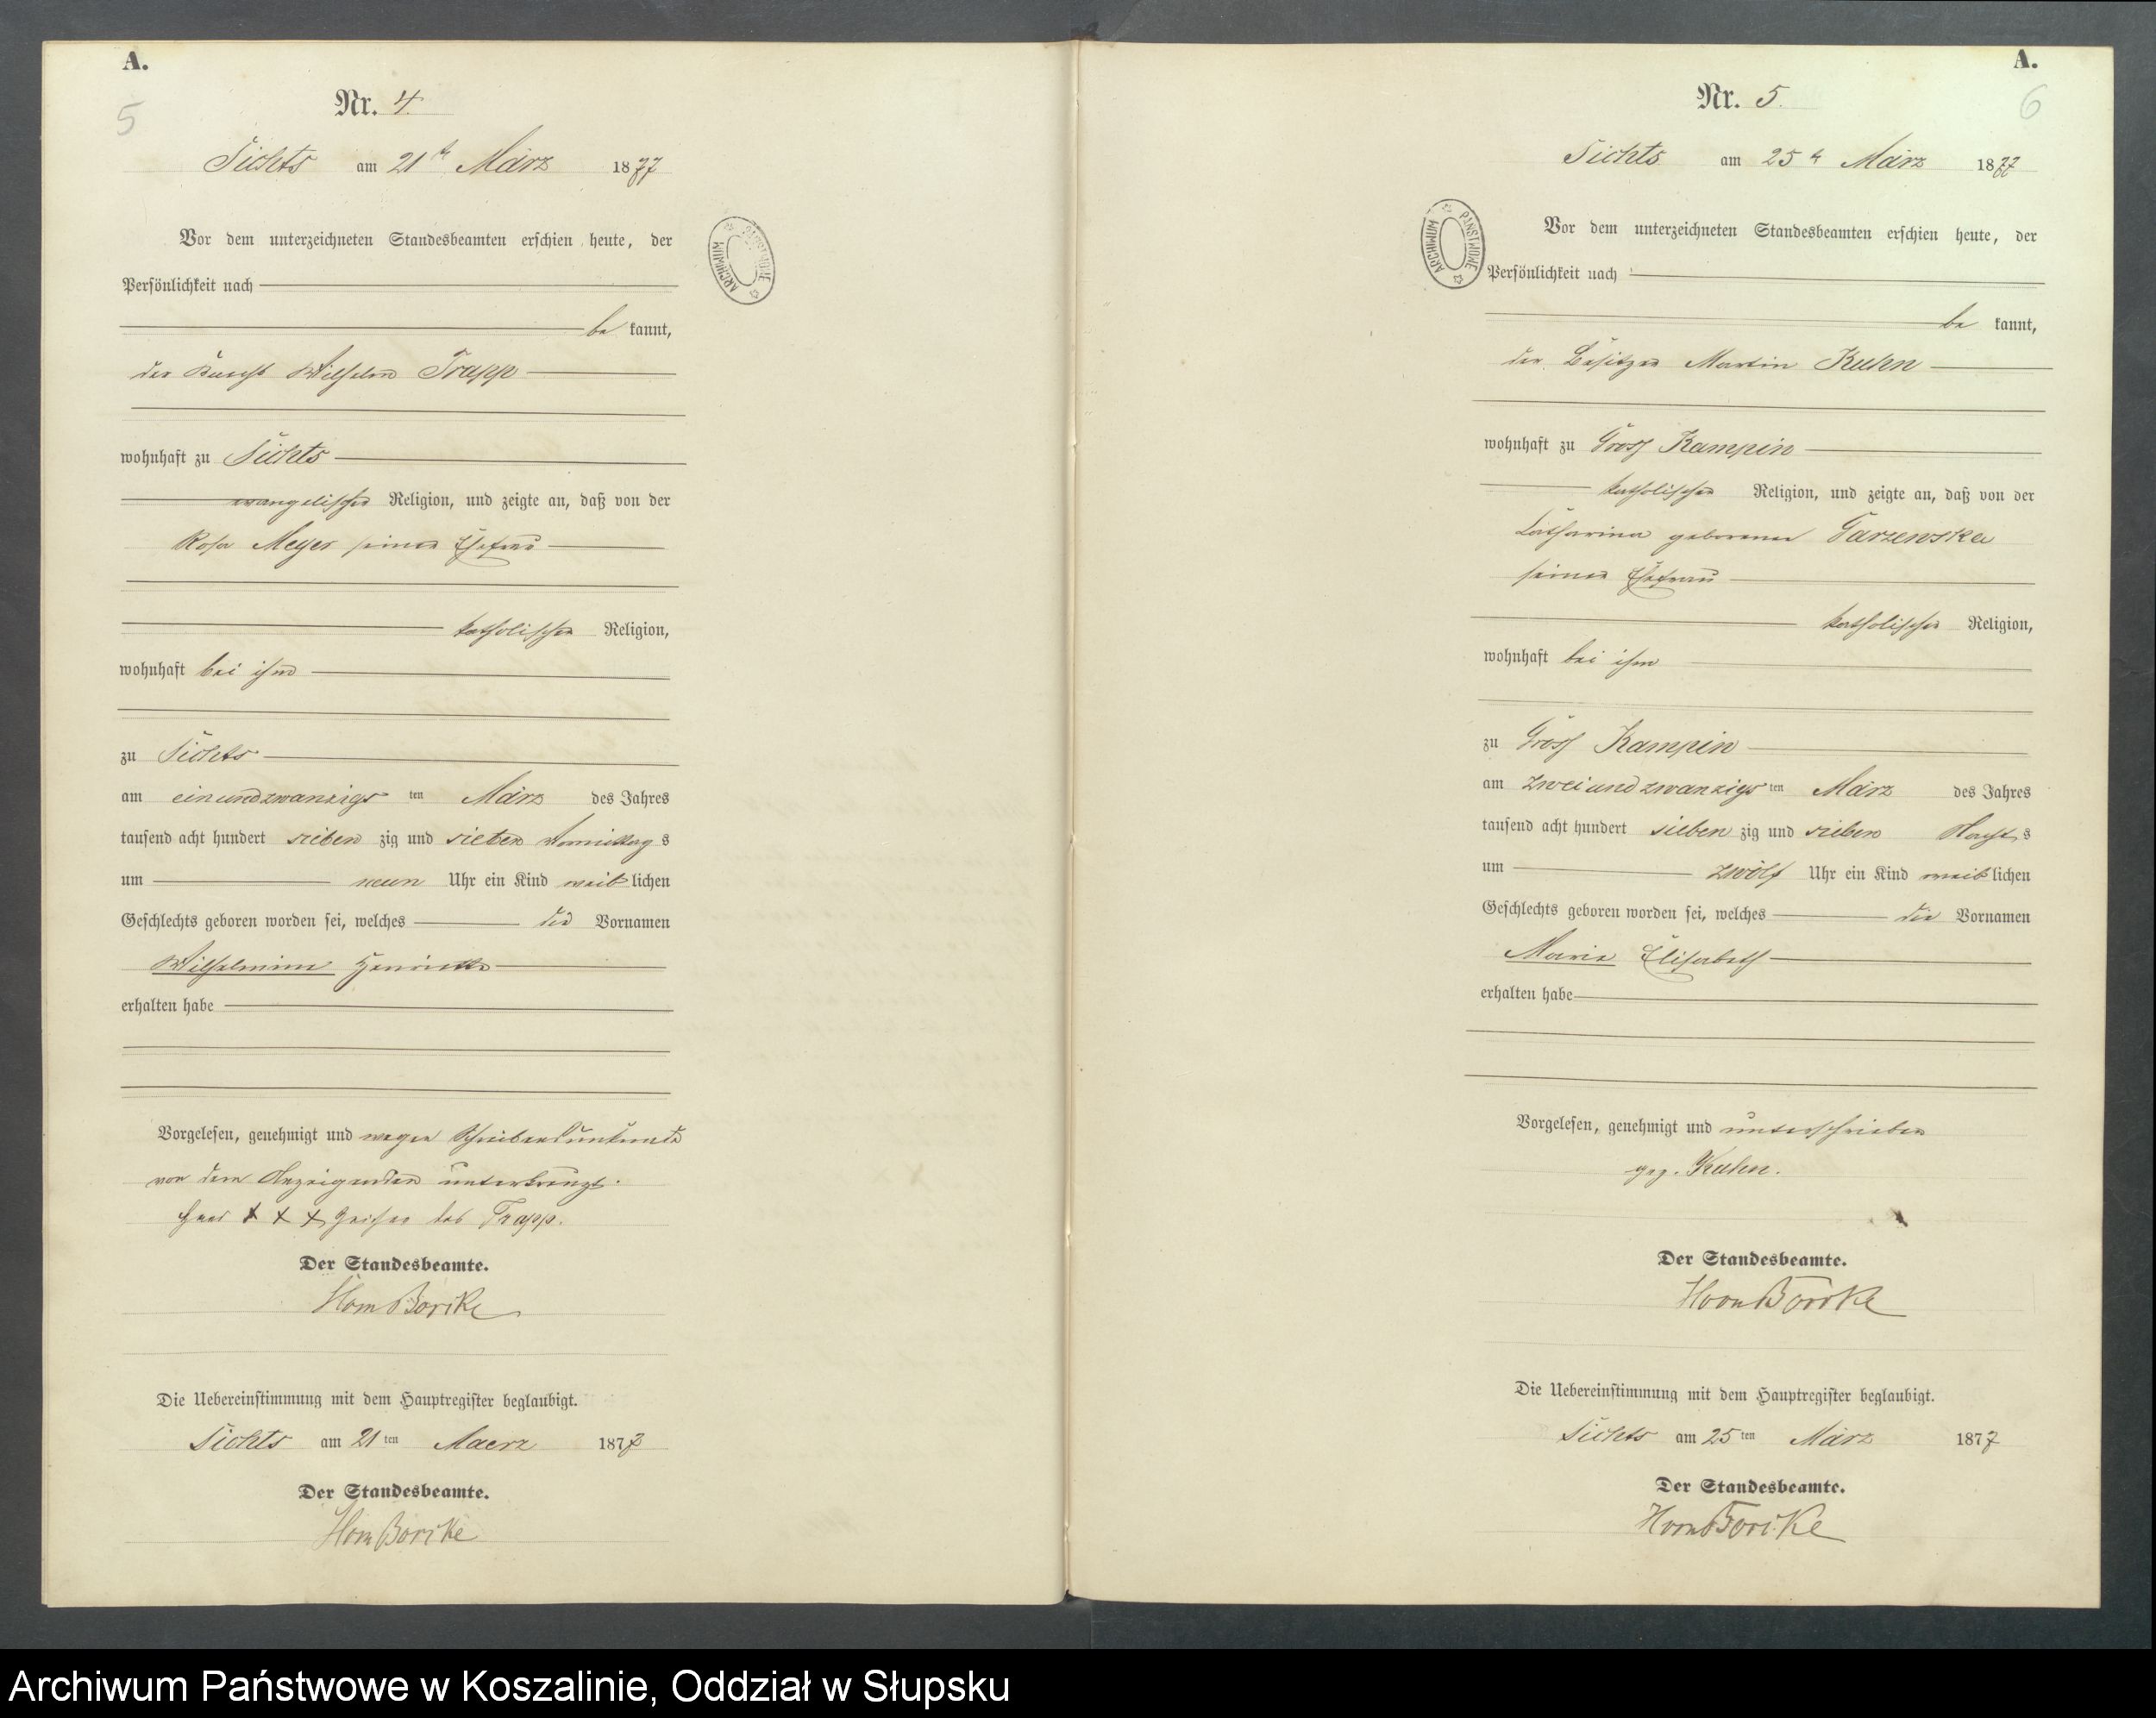 A.
5
Nr. 4.
Sichts am 21t März 1877
Vor dem unterzeichneten Standesbeamten erschien heute, der
Persönlichkeit nach
be kannt,
der Knecht Wilhelm Trapp
wohnhaft zu Sichts
evangelischer Religion, und zeigte an, daß von der
Rosa Meyer seiner Ehefrau
katholischer Religion,
wohnhaft bei ihm
zu Sichts
am einundzwanzigs ten März des Jahres
tausend acht hundert sieben zig und sieben Vormittag s
um neun Uhr ein Kind weib lichen
Geschlechts geboren worden sei, welches die Vornamen
Wilhelmine Henriette
erhalten habe
Vorgelesen, genehmigt und wegen Schreibensunkunde
von dem Anzeigenden unterkreuzt.
X X X des Trapp.
Der Standesbeamte.
Die Uebereinstimmung mit dem Hauptregister beglaubigt.
Sichts am 21 ten Maerz 1877
Der Standesbeamte.
ARCHIWUM PAŃSTWOWE
A.
6
Nr. 5.
Sichts am 25t März 1877
ARCHIWUM PAŃSTWOWE
Vor dem unterzeichneten Standesbeamten erschien heute, der
Persönlichkeit nach
be kannt,
der Besitzer Martin Kuhn
wohnhaft zu Gross Kampin
katholischer Religion, und zeigte an, daß von der
Catharina geborenen Garzewska
seiner Ehefrau
katholischer Religion,
wohnhaft bei ihm
zu Gross Kampin
am zweiundzwanzigs ten März des Jahres
tausend acht hundert sieben zig und sieben Nacht s
um zwölf Uhr ein Kind weib lichen
Geschlechts geboren worden sei, welches die Vornamen
Marie Elisabeth
erhalten habe
Vorgelesen, genehmigt und unterschrieben
gez. Kuhn.
Der Standesbeamte.
Die Uebereinstimmung mit dem Hauptregister beglaubigt.
Sichts am 25 ten März 1877
Der Standesbeamte.
Archiwum Państwowe w Koszalinie, Oddział w Słupsku